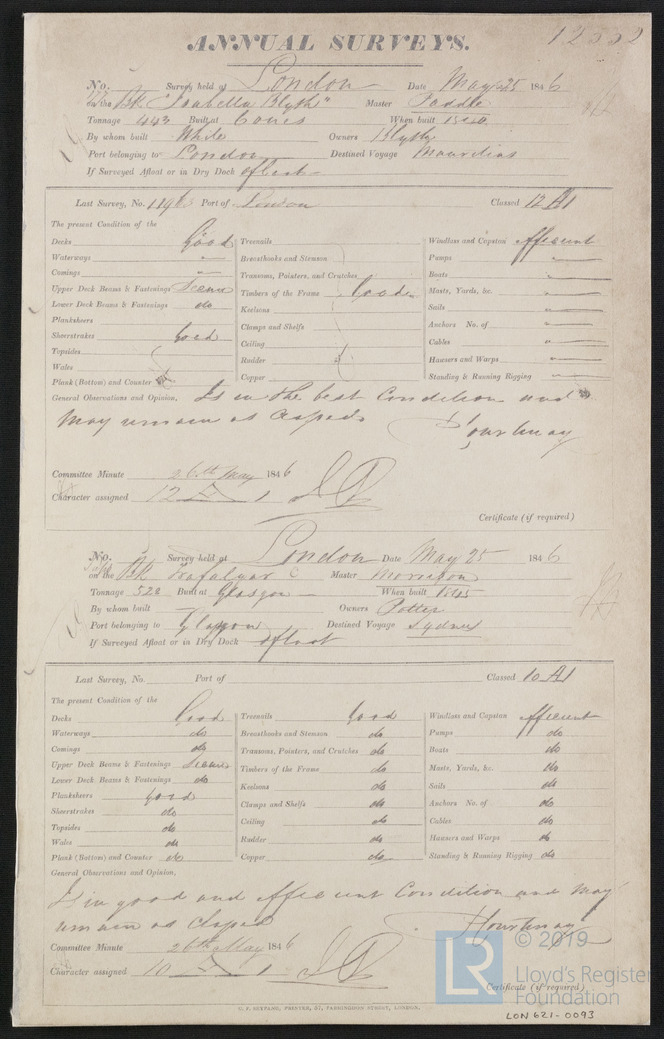 ANNUAL SURVEYS.
No. Survey held at London Date May 25 1846
on the Bk "Isabella Blyth" Master
Tonnage 443 Built at Cowes When built
By whom built White Owners Blyth
Port belonging to London Destined Voyage Mauritius
If Surveyed Afloat or in Dry Dock afloat
Last Survey, No. Port of London Classed 12 A1
The present Condition of the
Decks Good Treenails Windlass and Capstan efficient
Waterways " Breasthooks and Stemson Pumps "
Comings " Transoms, Pointers, and Crutches Boats "
Upper Deck Beams & Fastenings Secure Timbers of the Frame Good Masts, Yards, &c. "
Lower Deck Beams & Fastenings do Keelsons Sails "
Planksheers Clamps and Shelfs Anchors No. of "
Sheerstrakes Good Ceiling Cables "
Topsides Rudder Hawsers and Warps "
Wales Copper Standing & Running Rigging "
Plank (Bottom) and Counter
General Observations and Opinion, Is in the best Condition and
may remain as Classed
Committee Minute 26th May 1846
Character assigned 12 A 1
Certificate (if required)
No. Survey held at London Date May 25 1846
on the Bk Trafalgar Master Morrison
Tonnage 520 Built at Glasgow When built 1845
By whom built — Owners Potter
Port belonging to Glasgow Destined Voyage Sydney
If Surveyed Afloat or in Dry Dock afloat
Last Survey, No. Port of Classed 10 A1
The present Condition of the
Decks Good Treenails Good Windlass and Capstan efficient
Waterways do Breasthooks and Stemson do Pumps do
Comings do Transoms, Pointers, and Crutches do Boats do
Upper Deck Beams & Fastenings Secure Timbers of the Frame do Masts, Yards, &c. do
Lower Deck Beams & Fastenings do Keelsons do Sails do
Planksheers Good Clamps and Shelfs do Anchors No. of do
Sheerstrakes do Ceiling do Cables do
Topsides do Rudder do Hawsers and Warps do
Wales do Copper do Standing & Running Rigging do
Plank (Bottom) and Counter do
General Observations and Opinion,
Is in good and efficient Condition and may
remain as Classed
Committee Minute 26th May 1846
Character assigned 10 A 1
Certificate (if required)
LR © 2019
Lloyd's Register
Foundation
LON 621-0093